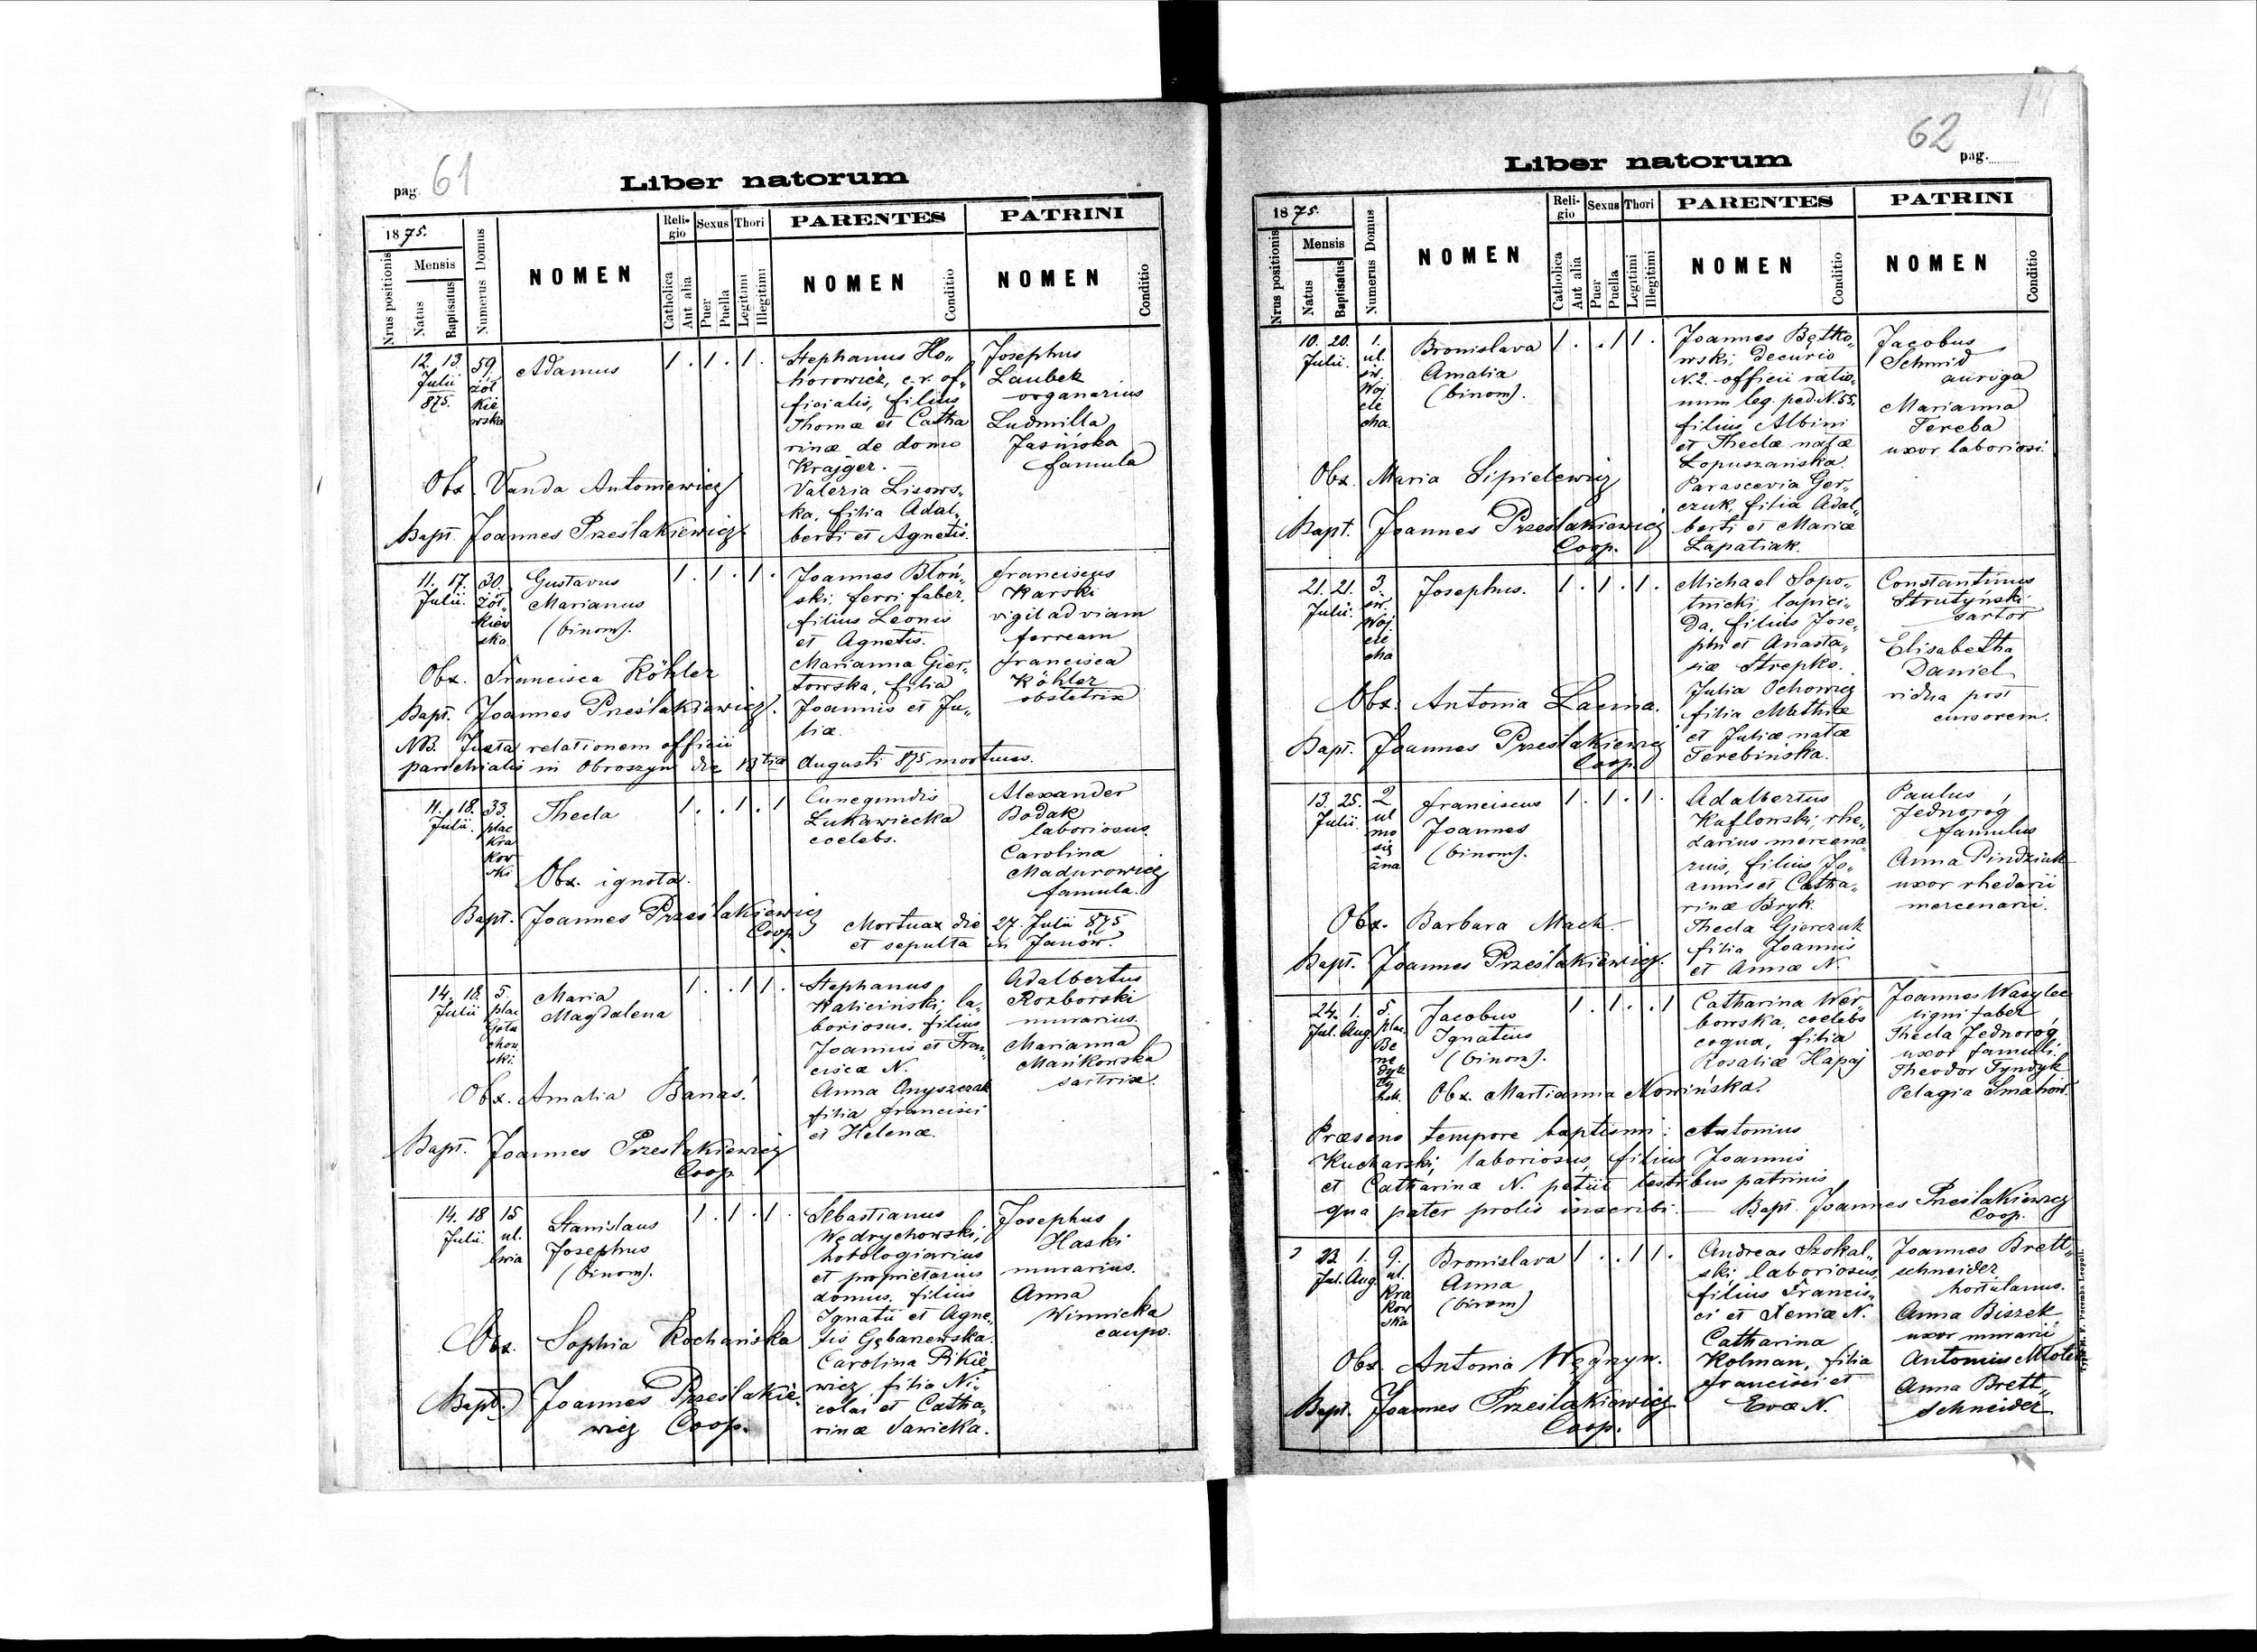 pag. 61
Liber natorum
1875.
Nrus positionis
Mensis
Natus
Baptisatus
Numerus Domus
NOMEN
Religio
Catholica
Aut alia
Sexus
Puer
Puella
Thori
Legitimi
Illegitimi
PARENTES
NOMEN
Conditio
PATRINI
NOMEN
Conditio
12. 13.
Julii
875.
59.
żół
kie
wska
Adamus
1. 1. 1.
Stephanus Ho„
horowicz, c. r. of„
ficialis, filius
Thomæ et Catha
rinæ de domo
Krajger.
Valeria Lisows„
ka, filia Adal„
berti et Agnetis.
Josephus
Laubek
organarius
Ludmilla
Jasińska
famula
Obx. Vanda Antoniewicz
Bapt. Joannes Prześlakiewicz
11. 17.
Julii.
30.
żół„
kiew
ska
Gustavus
Marianus
(binom).
1. 1. 1.
Joannes Błoń„
ski, ferri faber,
filius Leonis
et Agnetis.
Marianna Gier„
towska, filia
Joannis et Ju„
liæ.
Franciscus
Karski
vigil ad viam
ferream
Francisca
Köhler
obstetrix
Obx. Francisca Köhler
Bapt. Joannes Prześlakiewicz.
NB. Juxta relationem officii
parochialis in Obroszyn die 13tia Augusti 875 mortuus.
11. 18.
Julii.
33.
plac
Kra
kow
ski
Thecla
1. .1 .1
Cunegundis
Łukawiecka
coelebs.
Alexander
Bodak
laboriosus.
Carolina
Madurowicz
famula.
Obx. ignota.
Bapt. Joannes Prześlakiewicz
Coop.
Mortua die 27. Julii 875
et sepulta in Janów.
14. 18.
Julii
5.
plac
Gołu
chow
ski.
Maria
Magdalena
1. .1 1.
Stephanus
Kaliciński, la„
boriosus, filius
Joannis et Fran„
ciscæ N.
Anna Onyszczak
filia Francisci
et Helenæ.
Adalbertus
Rozborski
murarius.
Marianna
Mańkowska
sartrix.
Obx. Amalia Banaś.
Bapt. Joannes Prześlakiewicz
Coop.
14. 18
Julii.
15
ul.
lwia
Stanislaus
Josephus
(binom).
1. 1. 1.
Sebastianus
Wędrychowski,
horologiarius
et proprietarius
domus, filius
Ignatii et Agne„
tis Gębanewska.
Carolina Pikie„
wicz filia Ni„
colai et Catha„
rinæ Sawicka.
Josephus
Haski
murarius.
Anna
Winnicka
caupo.
Obx. Sophia Kochańska
Bapt. Joannes Prześlakie„
wicz Coop.
62
pag.
Liber natorum
1875.
Nrus positionis
Mensis
Natus
Baptisatus
Numerus Domus
NOMEN
Religio
Catholica
Aut alia
Sexus
Puer
Puella
Thori
Legitimi
Illegitimi
PARENTES
NOMEN
Conditio
PATRINI
NOMEN
Conditio
10. 20.
Julii.
1.
ul.
św.
Woj
cie
cha.
Bronislava
Amalia
(binom).
1. .1 1.
Joannes Bętko„
wski, decurio
N. 2. officii ratio„
num leg. ped. N. 55.
filius Albini
et Theclæ natæ
Łopuszańska.
Parascevia Ger„
czuk, filia Adal„
berti et Mariæ
Łapatiak.
Jacobus
Schmid
auriga
Marianna
Tereba
uxor laboriosi.
Obx. Maria Lipielewicz
Bapt. Joannes Prześlakiewicz
Coop.
21. 21.
Julii.
3.
św.
Woj
cie
cha
Josephus.
1. 1. 1.
Michael Sopo„
tnicki, lapici„
da, filius Jose„
phi et Anasta„
siæ Strepko.
Julia Ochowicz
filia Mathiæ
et Juliæ natæ
Terebińska.
Constantinus
Strutyński
sartor
Elisabetha
Daniel
vidua post
cursorem.
Obx. Antonia Lacina.
Bapt. Joannes Prześlakiewicz
Coop.
13. 25.
Julii.
2
ul
mo
się
żna
Franciscus
Joannes
(binom).
1. 1. 1.
Adalbertus
Kaflowski, rhe„
darius mercena
rius, filius Jo„
annis et Catha„
rinæ Bryk.
Thecla Gierczuk
filia Joannis
et Annæ N.
Paulus
Jednoróg
famulus
Anna Pindziuk
uxor rhedarii
mercenarii.
Obx. Barbara Mach.
Bapt. Joannes Prześlakiewicz.
24. 1.
Jul. Aug.
5.
plac.
Be
ne
dyk
ty
nek.
Jacobus
Ignatius
(binom).
1. 1. .1
Catharina Wer„
bowska, coelebs
coqua, filia
Rosaliæ Hapaj
Joannes Wasylec
ligni faber
Thecla Jednoróg
uxor famuli.
Theodor Tyndyk
Pelagia Smahow.
Obx. Martianna Nowińska.
Præsens tempore baptismi: Antonius
Kucharski, laboriosus, filius Joannis
et Catharinæ N. petiit testibus patrinis
qua pater prolis inscribi. — Bapt. Joannes Prześlakiewicz
Coop.
23. 1.
Jul. Aug.
9.
ul.
Kra
kow
ska
Bronislava
Anna
(binom)
1. .1 1.
Andreas Szokal„
ski laboriosus,
filius Francis„
ci et Xeniæ N.
Catharina
Kolman, filia
Francisci et
Evæ N.
Joannes Brett„
schneider
hortulanus.
Anna Biszek
uxor murarii
Antonius Młotek
Anna Brett„
schneider
Obx. Antonia Węgrzyn.
Bapt. Joannes Prześlakiewicz
Coop.